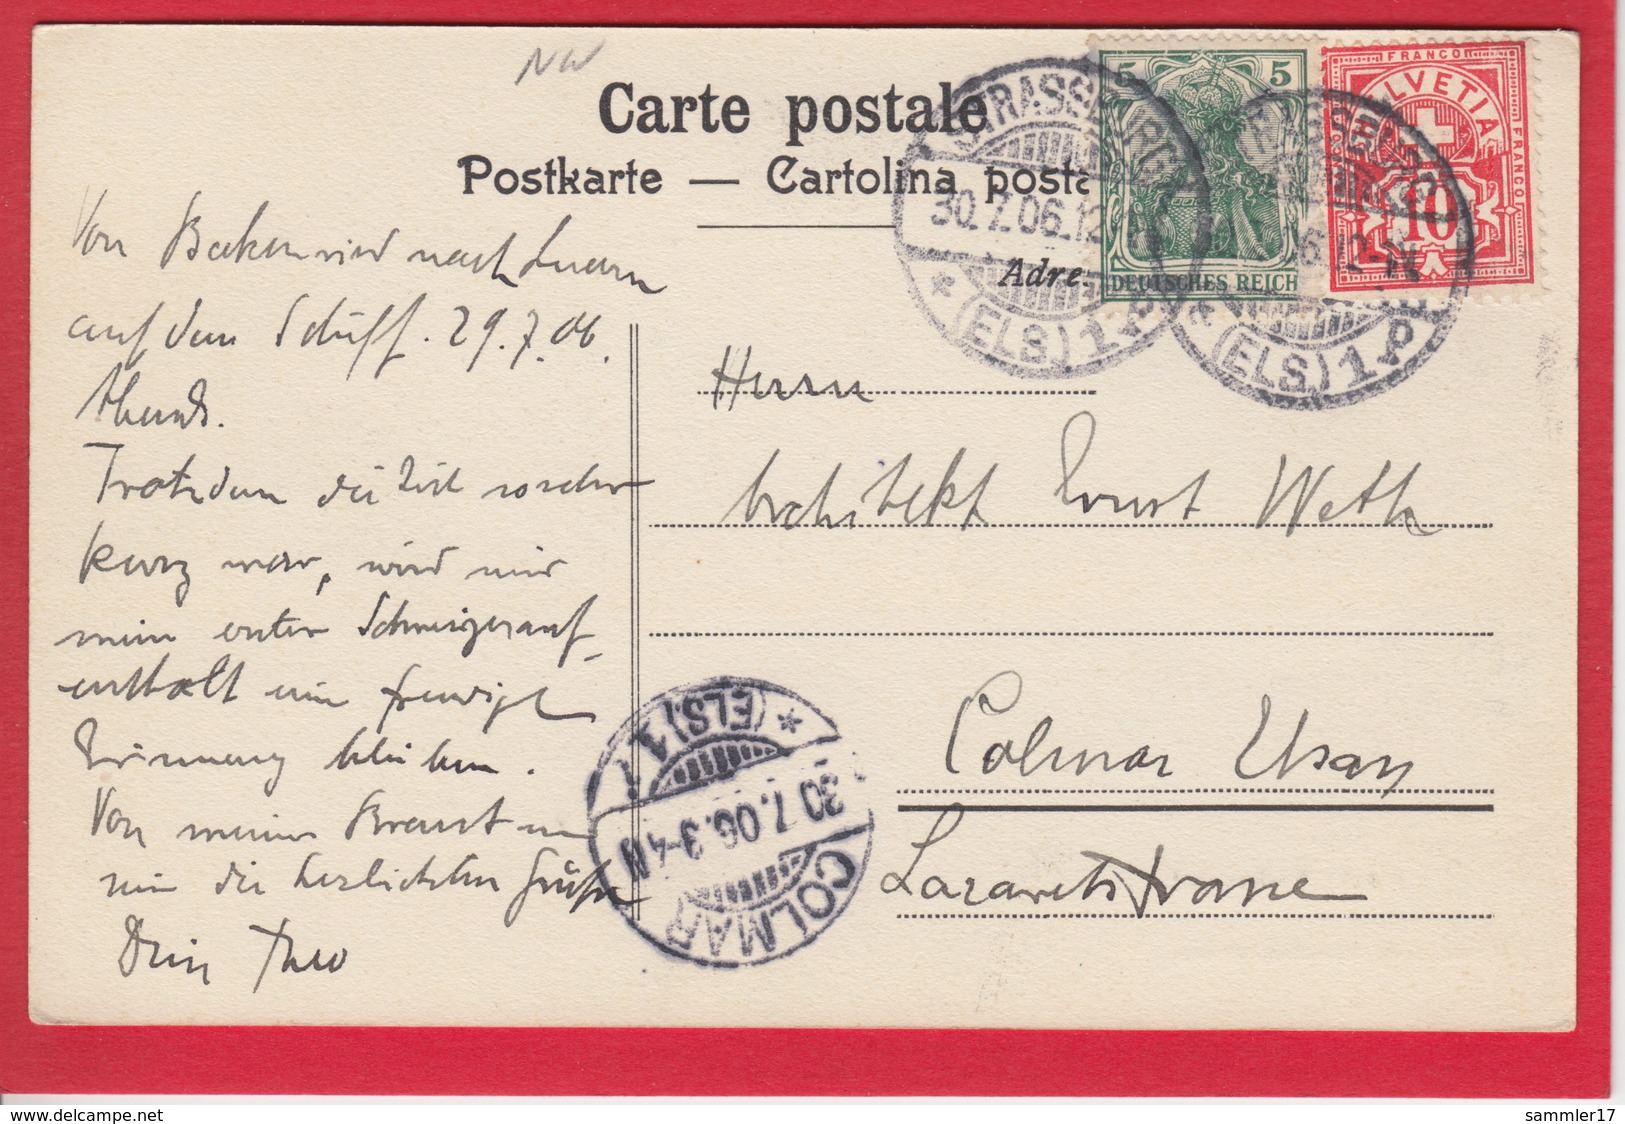 NW
Carte postale
Postkarte — Cartolina posta
Adre
5 5
DEUTSCHES REICH
FRANCO
HELVETIA
FRANCO
10
STRASSBURG
30.7.06.12
* (ELS.) 1.P
* (ELS.) 1.P
Von Beckenried nach Luzern
auf dem Schiff. 29.7.06.
Abends.
Trotzdem die Zeit so sehr
kurz war, wird mir
mein erster Schweizerauf-
enthalt eine freudige
Erinnerung bleiben.
Von meiner Braut u
mir die herzlichsten Grüße
Dein Theo
Herrn
Architekt Ernst Weth
Colmar Elsass
Lazarettstrasse
COLMAR
30.7.06.3-4N
* (ELS.) 1
www.delcampe.net
sammler17